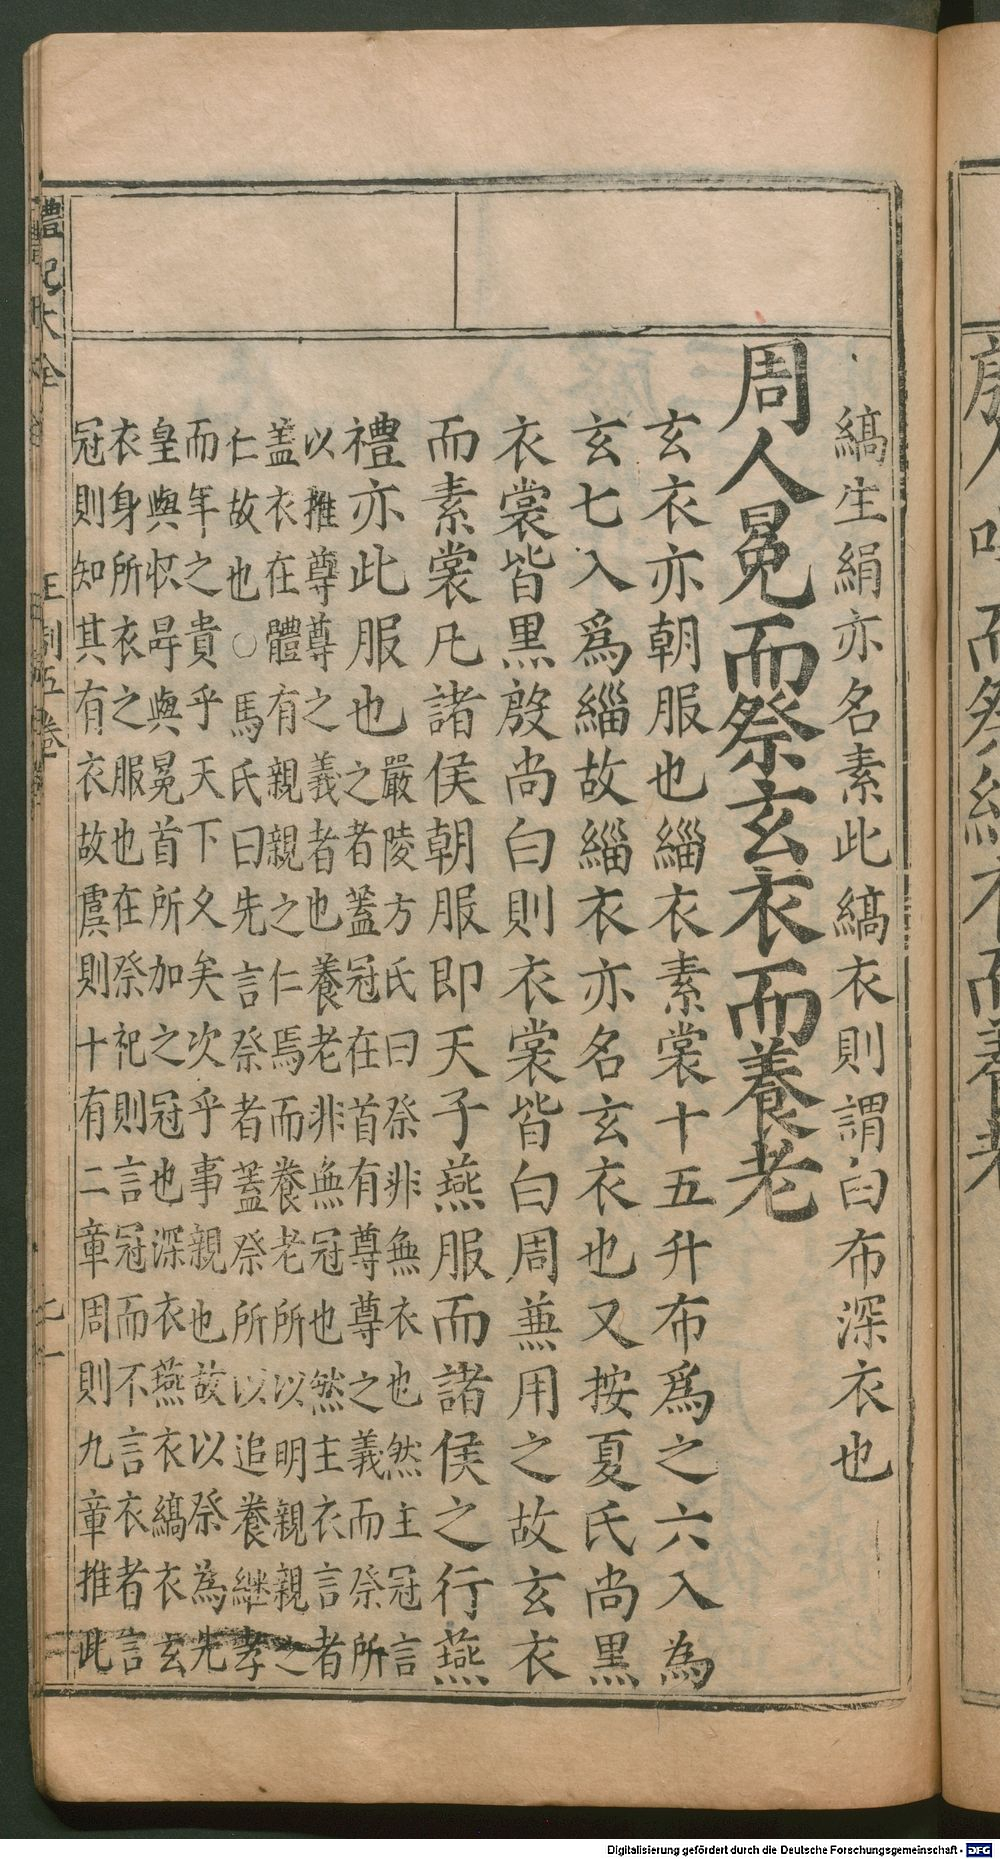 縞生絹亦名素此縞衣則謂白布深衣也
周人冕而祭玄衣而養老
玄衣亦朝服也緇衣素裳十五升布爲之六入為
玄七入爲緇故緇衣亦名玄衣也又按夏氏尚黑
衣裳皆黒殷尚白則衣裳皆白周兼用之故玄衣
而素裳凡諸侯朝服即天子燕服而諸侯之行燕
禮亦此服也
嚴陵方氏曰祭非無衣也然主冠言
之者蓋冠在首有尊尊之義而祭所
以推尊尊之義者也養老非無冠也然主衣言者
盖衣在體有親親之仁焉而養老所以明親親之
仁故也○馬氏曰先言祭者蓋祭所以追養継孝
而年之貴乎天下久矣次乎事親也故以祭為先
皇與収冔與冕首所加之冠也深衣燕衣縞衣玄
衣身所衣之服也在祭祀則言冠而不言衣者言
冠則知其有衣故虞則十有二章周則九章推此
禮記大全
王制五卷